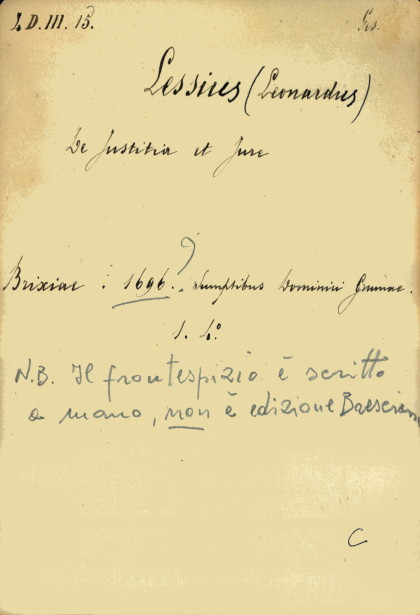 Z D. III. 15.
Ges.
Lessius (Leonardus)
De Justitia et Jure
?
Brixiae : 1696. Sumptibus Dominici Grumae.
1. 4.º
N.B. Il frontespizio è scritto
a mano, non è edizione Bresciana
C